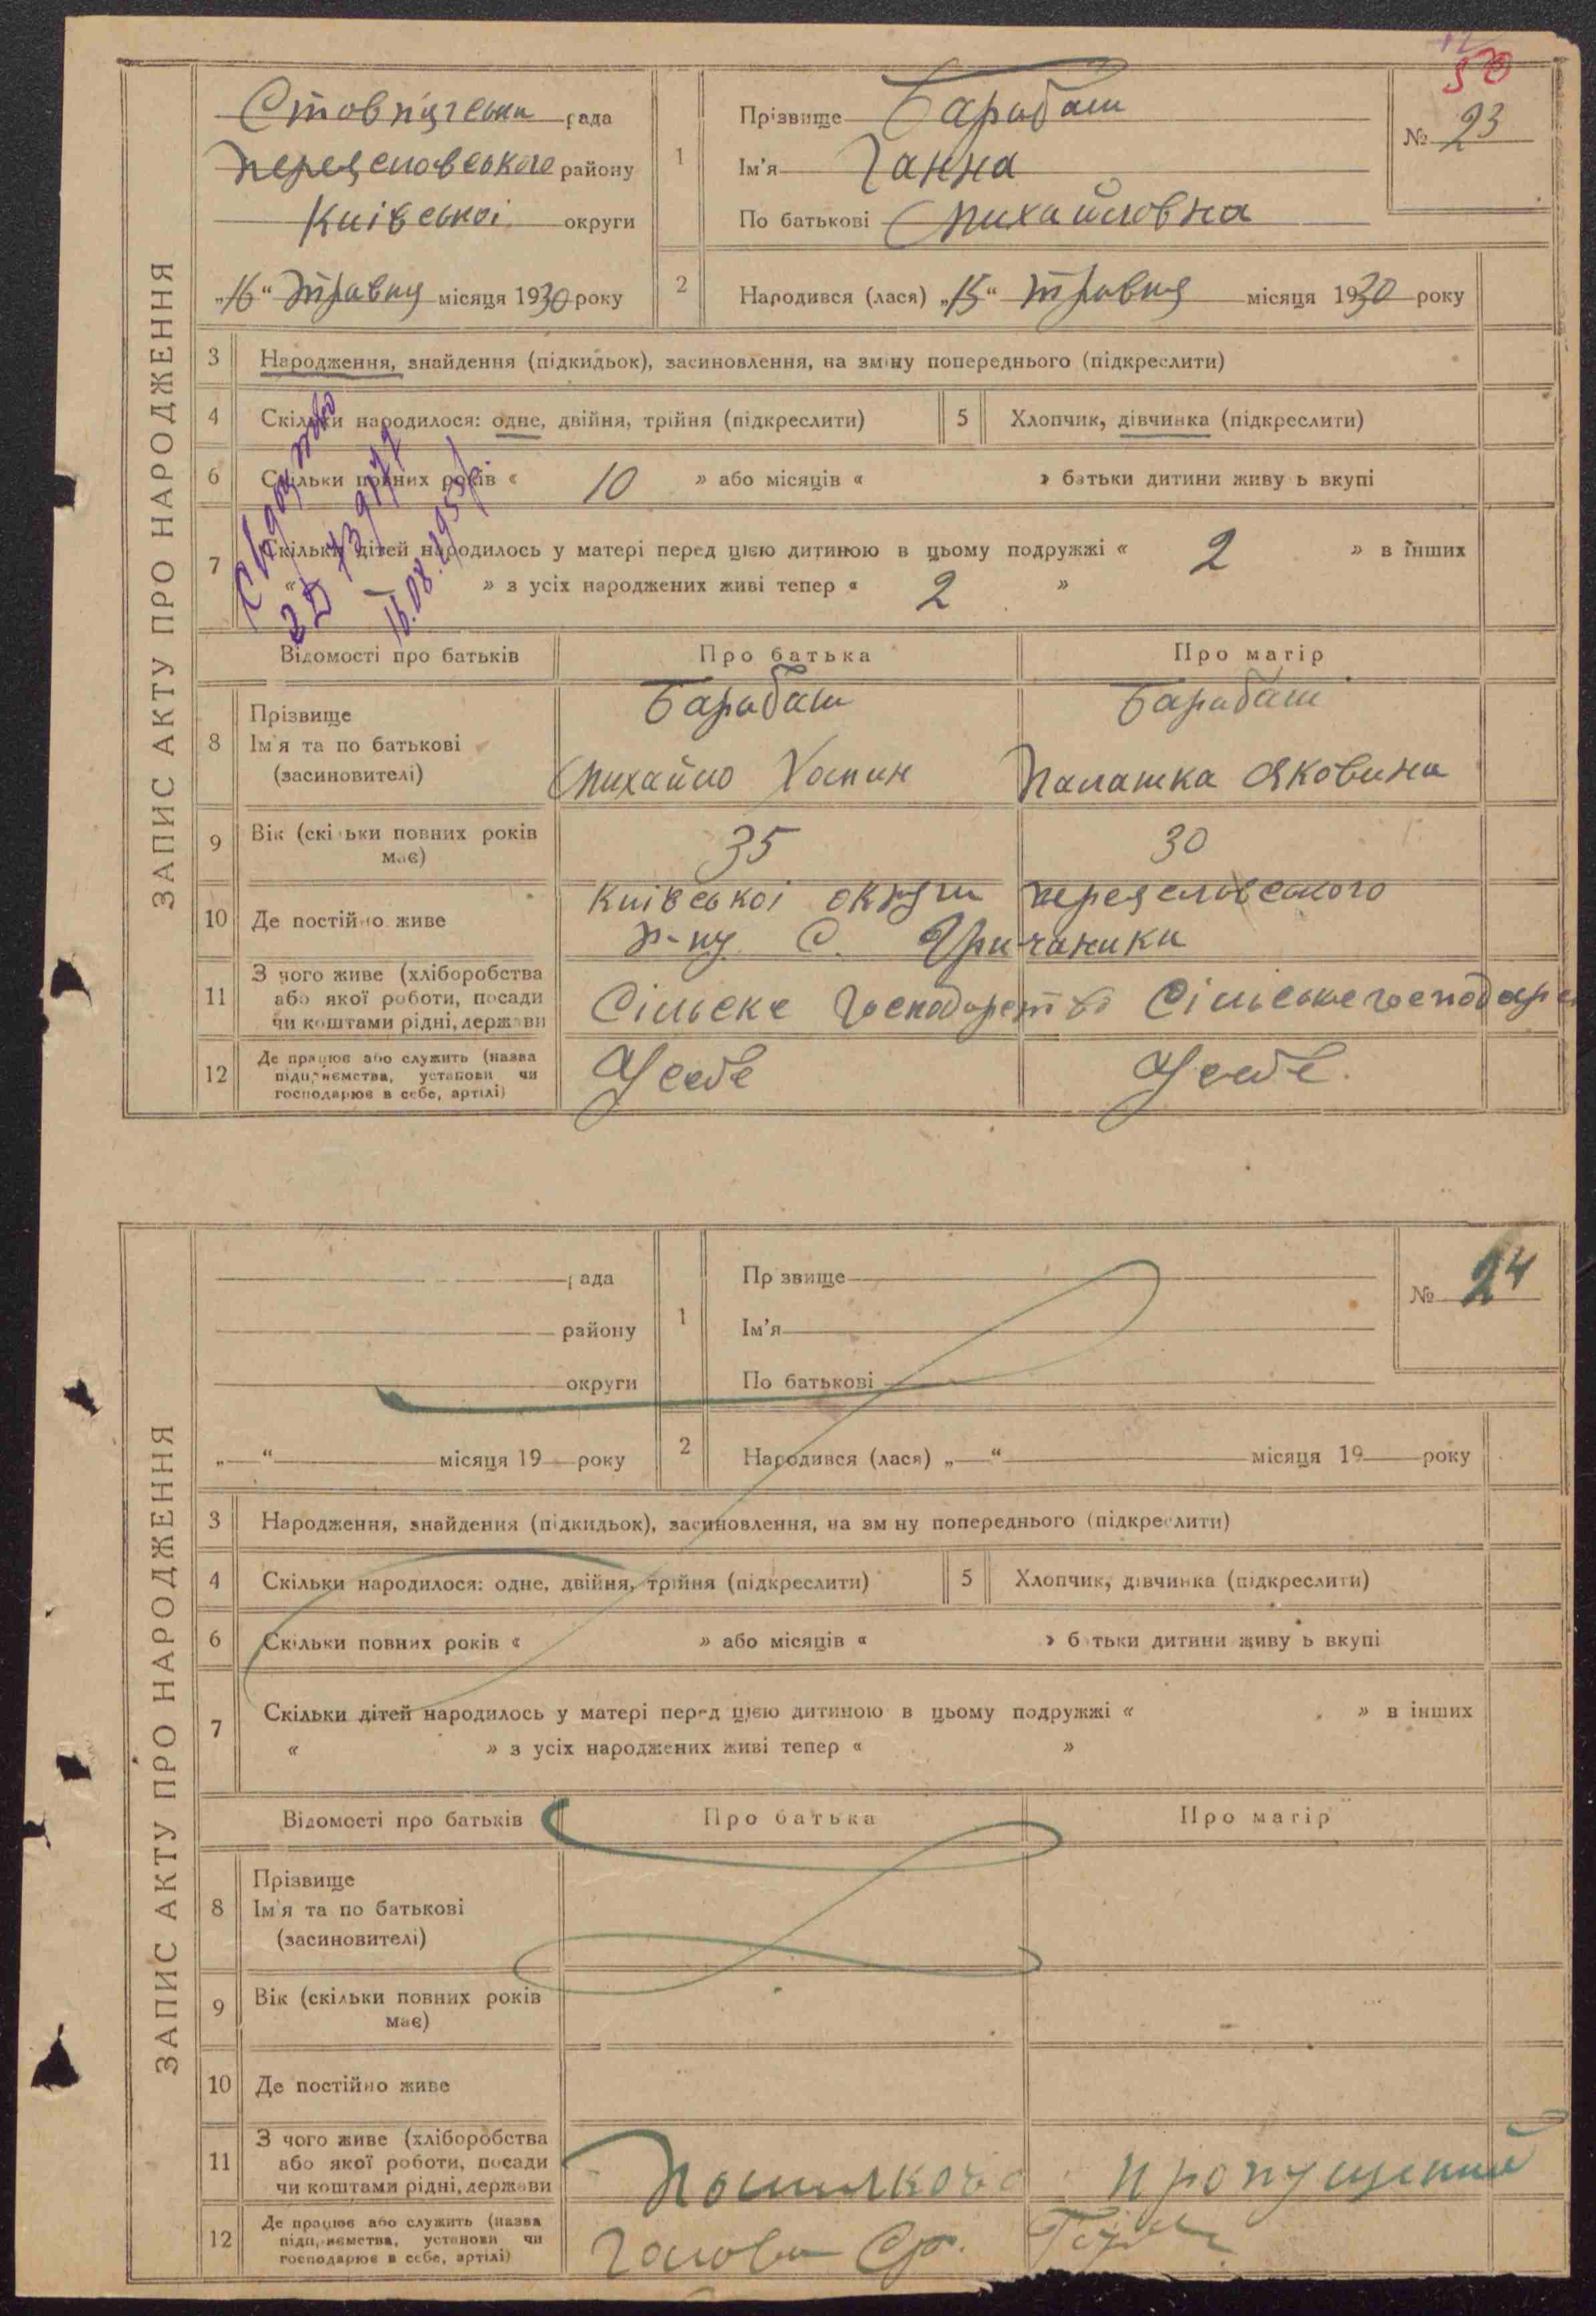 50
ЗАПИС АКТУ ПРО НАРОДЖЕННЯ
Стовпязська рада
Переяславського району
Київської округи
„16“ Травня місяця 1930 року
1
Прізвище Барабаш
Ім'я Ганна
По батькові Михайловна
№ 23
2
Народився (лася) „15“ травня місяця 1930 року
3 Народження, знайдення (підкидьок), засиновлення, на зміну попереднього (підкреслити)
4 Скільки народилося: одне, двійня, трійня (підкреслити) 5 Хлопчик, дівчинка (підкреслити)
6 Скільки повних років « 10 » або місяців « » батьки дитини живуть вкупі
7 Скільки дітей народилось у матері перед цією дитиною в цьому подружжі « 2 » в інших
« » з усіх народжених живі тепер « 2 »
16.08.1955р.
Відомості про батьків Про батька Про матір
8 Прізвище
Ім'я та по батькові
(засиновителі)
Барабаш
Михайло
Барабаш
Палашка Яковина
9 Вік (скільки повних років
має)
35 30
10 Де постійно живе
Київської округи Переяславського
р-ну С.
11 З чого живе (хліборобства
або якої роботи, посади
чи коштами рідні, держави
Сільске господарство Сільське господарс
12 Де працює або служить (назва
підприємства, установи чи
господарює в себе, артілі)
У себе У себе.
ЗАПИС АКТУ ПРО НАРОДЖЕННЯ
рада
району
округи
„ “ місяця 19 року
1
Прізвище
Ім'я
По батькові
№ 24
2
Народився (лася) „ “ місяця 19 року
3 Народження, знайдення (підкидьок), засиновлення, на зміну попереднього (підкреслити)
4 Скільки народилося: одне, двійня, трійня (підкреслити) 5 Хлопчик, дівчинка (підкреслити)
6 Скільки повних років « » або місяців « » батьки дитини живуть вкупі
7 Скільки дітей народилось у матері перед цією дитиною в цьому подружжі « » в інших
« » з усіх народжених живі тепер « »
Відомості про батьків Про батька Про матір
8 Прізвище
Ім'я та по батькові
(засиновителі)
9 Вік (скільки повних років
має)
10 Де постійно живе
11 З чого живе (хліборобства
або якої роботи, посади
чи коштами рідні, держави
Помилково пропущений
12 Де працює або служить (назва
підприємства, установи чи
господарює в себе, артілі)
Голова Ср.